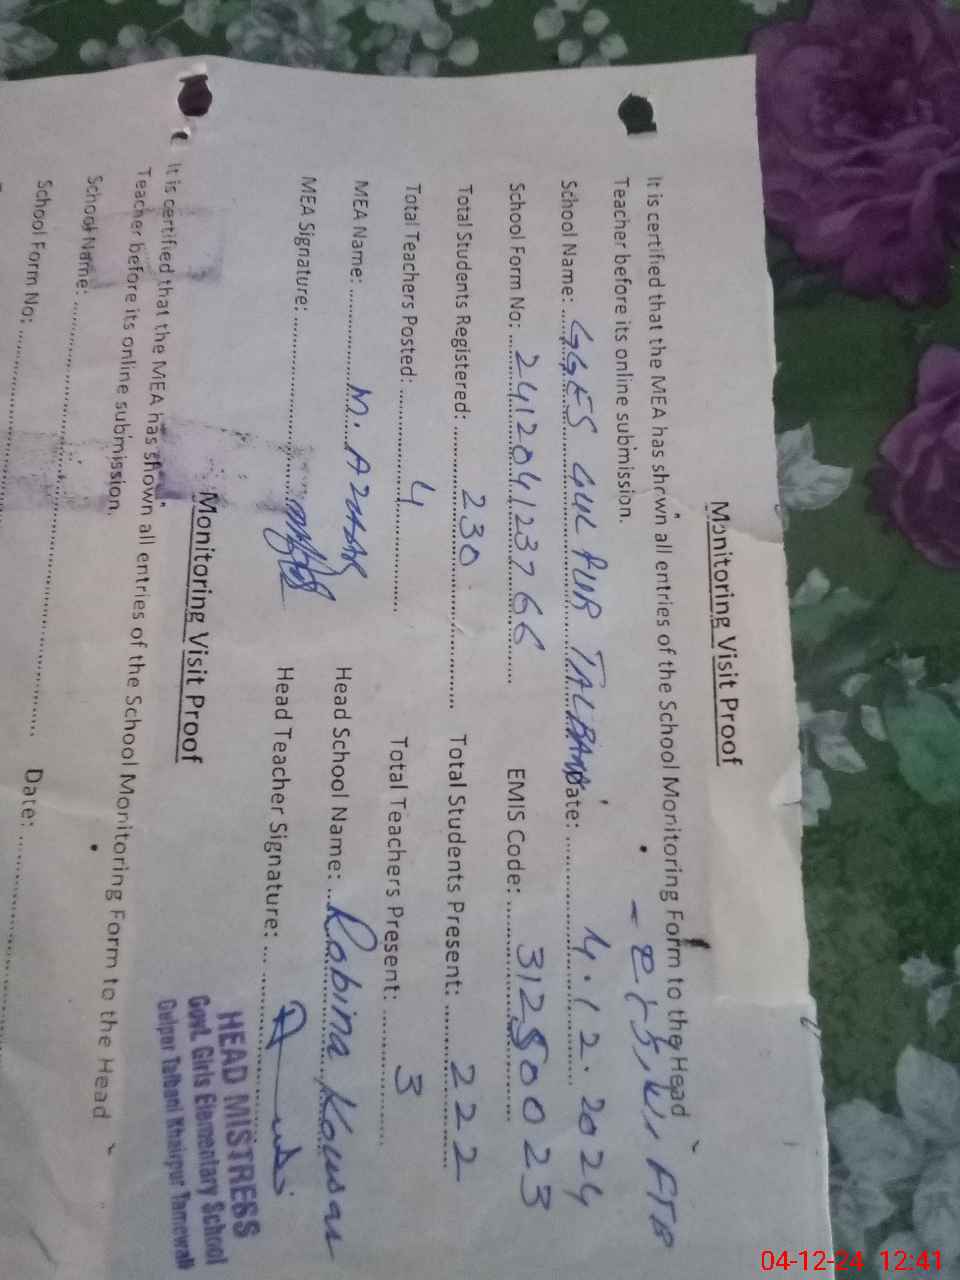 Monitoring Visit Proof
It is certified that the MEA has shown all entries of the School Monitoring Form to the Head
Teacher before its online submission.
School Name: GGES GUL PUR TALBANI Date: 4.12.2024
School Form No: 241204123766 EMIS Code: 31250023
Total Students Registered: 230 Total Students Present: 222
Total Teachers Posted: 4 Total Teachers Present: 3
MEA Name: M. AZHAR Head School Name: Robina Kousar
MEA Signature: Head Teacher Signature:
HEAD MISTRESS
Govt. Girls Elementary School
Gulpur Talbani Khairpur Tamewali
Monitoring Visit Proof
It is certified that the MEA has shown all entries of the School Monitoring Form to the Head
Teacher before its online submission.
School Name: Date:
School Form No:
04-12-24 12:41